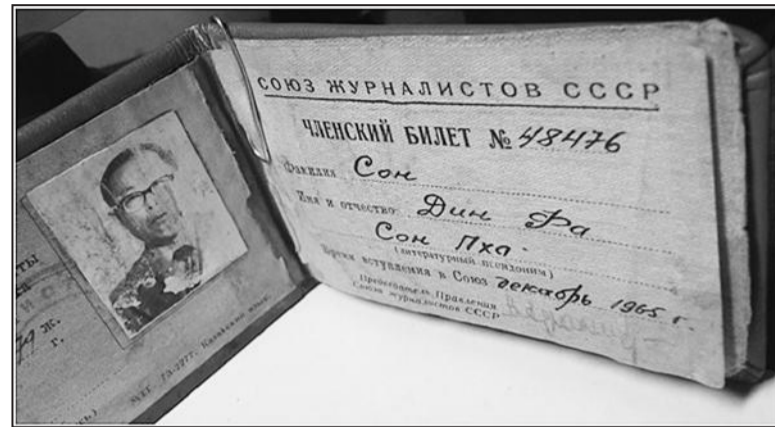 СОЮЗ ЖУРНАЛИСТОВ СССР
ЧЛЕНСКИЙ БИЛЕТ № 48476
Фамилия Сон
Имя и отчество Дин Фа
Сон Пха
(литературный псевдоним)
Время вступления в Союз декабрь 1965 г.
Председатель Правления
Союза журналистов СССР
ж.
г.